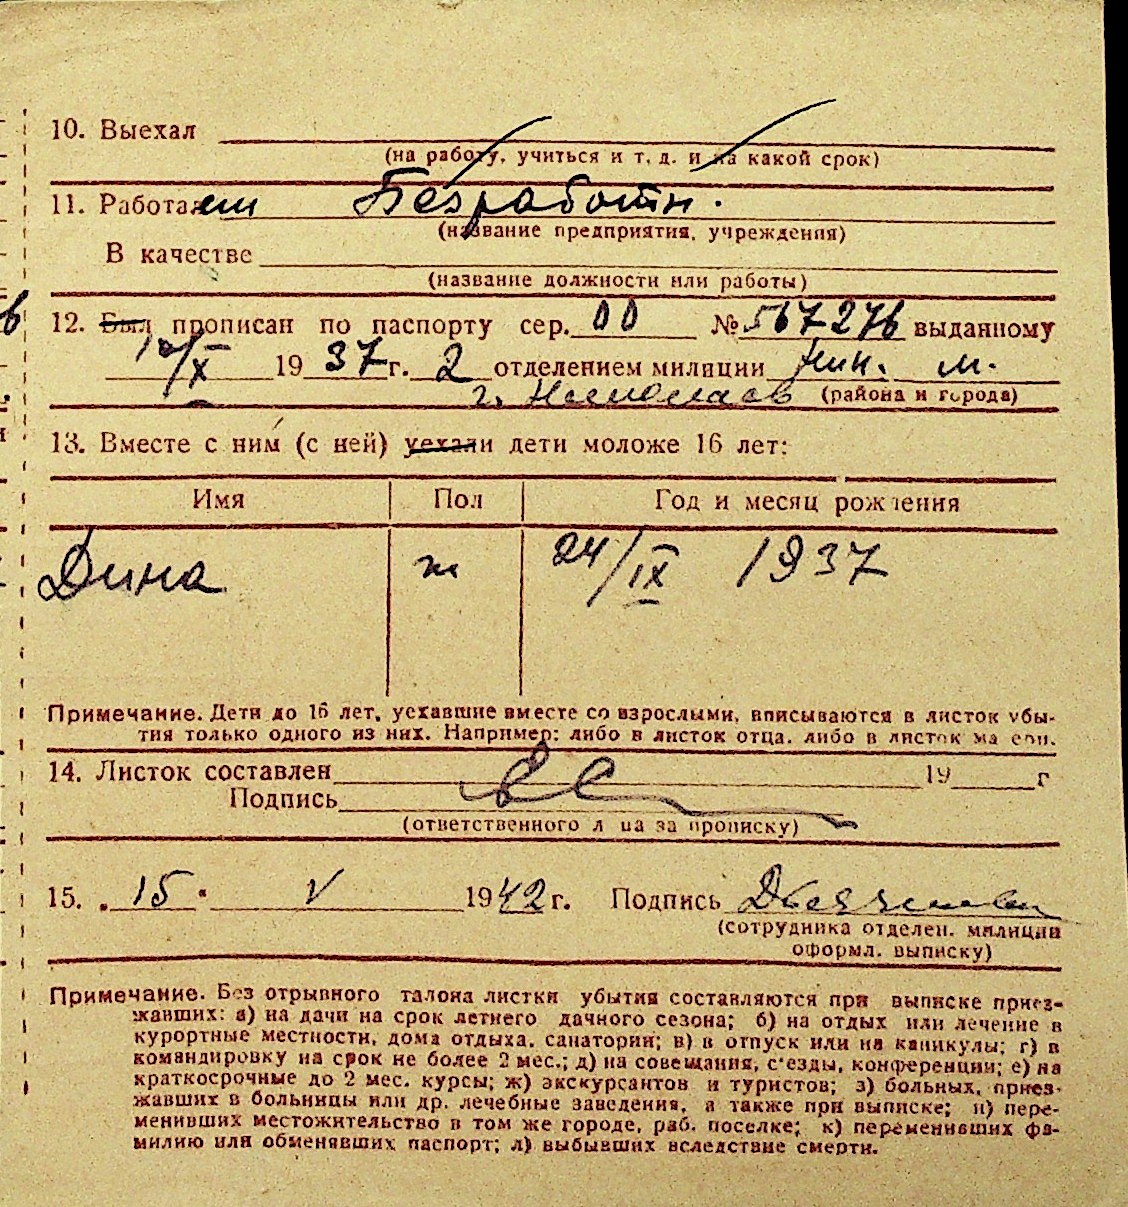 10. Выехал
(на работу, учиться и т. д. и на какой срок)
11. Работает Безработн.
(название предприятия, учреждения)
В качестве
(название должности или работы)
12. Был прописан по паспорту сер. 00 № 567276 выданному
/X 1937 г. 2 отделением милиции м.
г. Николаев (района и города)
13. Вместе с ним (с ней) уехали дети моложе 16 лет:
Имя Пол Год и месяц рождения
Дина ж 24/IX 1937
Примечание. Дети до 16 лет, уехавшие вместе со взрослыми, вписываются в листок убы-
тия только одного из них. Например: либо в листок отца, либо в листок матери.
14. Листок составлен 19 г
Подпись
(ответственного лица за прописку)
15. „ 15 " V 1942 г. Подпись
(сотрудника отделен. милиции
оформл. выписку)
Примечание. Без отрывного талона листки убытия составляются при выписке приез-
жавших: а) на дачи на срок летнего дачного сезона; б) на отдых или лечение в
курортные местности, дома отдыха, санатории; в) в отпуск или на каникулы; г) в
командировку на срок не более 2 мес.; д) на совещания, с'езды, конференции; е) на
краткосрочные до 2 мес. курсы; ж) экскурсантов и туристов; з) больных, приез-
жавших в больницы или др. лечебные заведения, а также при выписке; и) пере-
менивших местожительство в том же городе, раб. поселке; к) переменивших фа-
милию или обменявших паспорт; л) выбывших вследствие смерти.